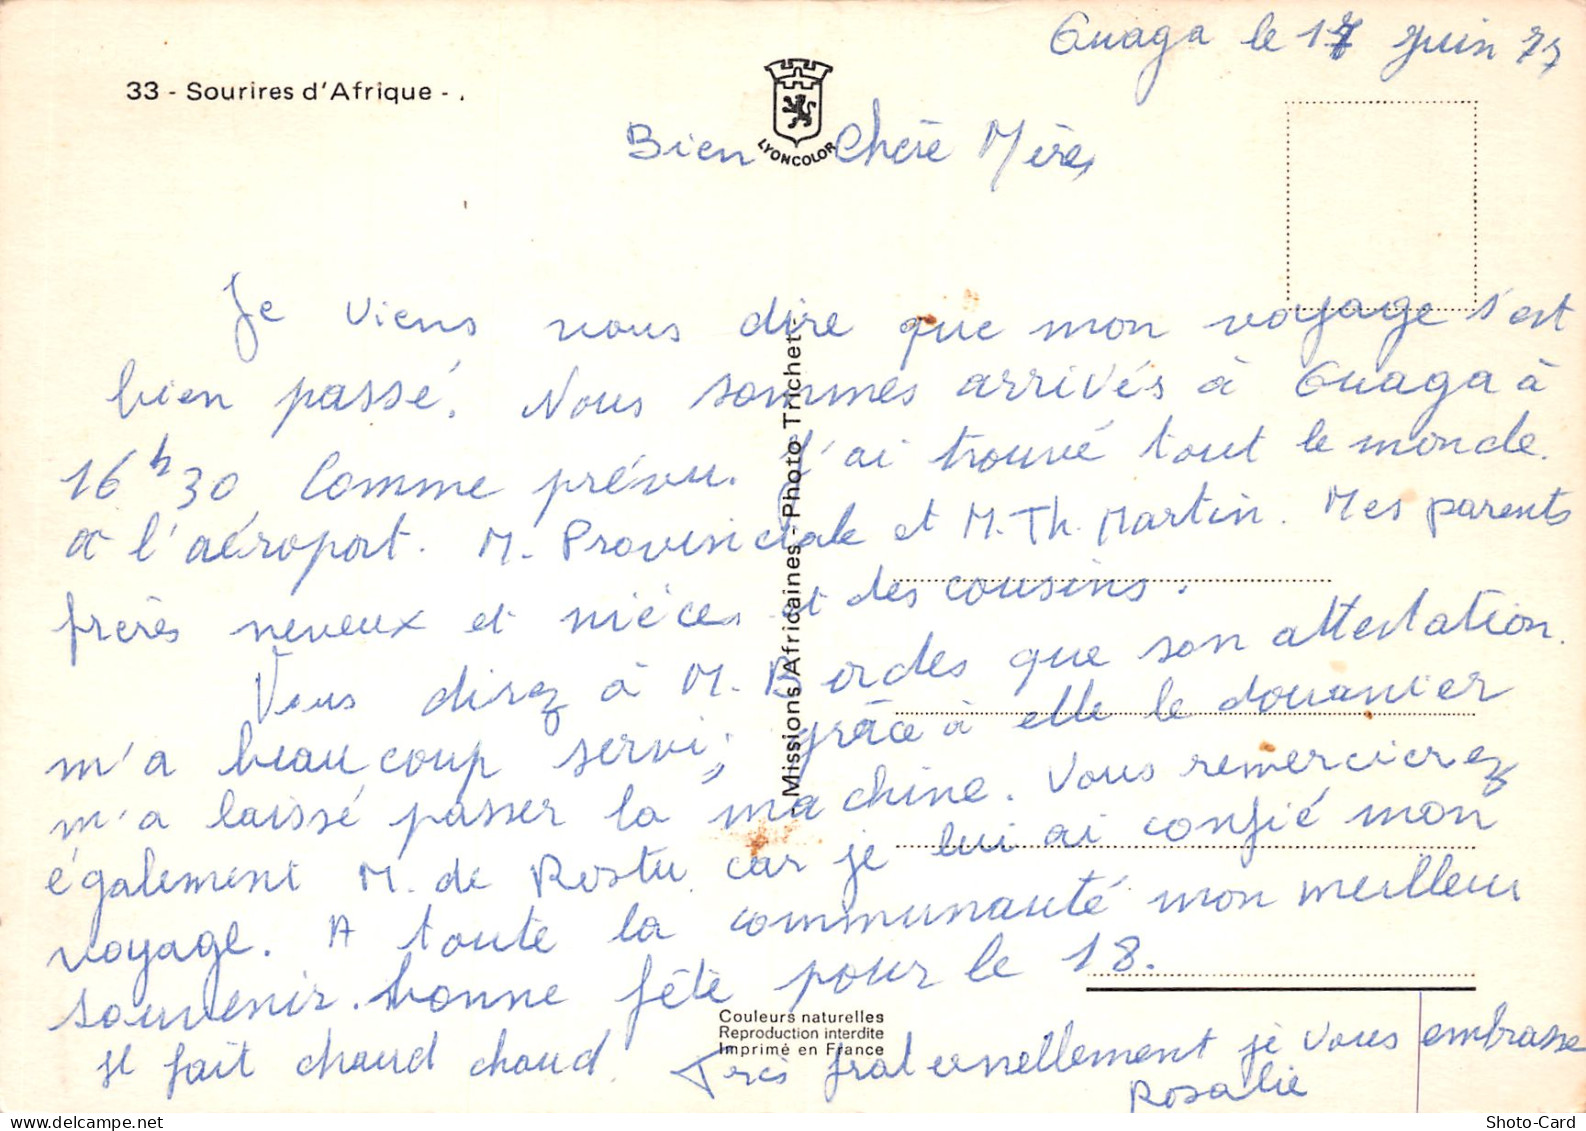 Ouaga le 17 Juin 77
33 - Sourires d'Afrique - .
LYONCOLOR
Bien Chère Mère,
Je viens vous dire que mon voyage s'est
bien passé. Nous sommes arrivés à Ouaga à
16h30 Comme prévu. J'ai trouvé tout le monde
à l'aéroport. M. Provinciale et M. Th. Martin. Mes parents
frères neveux et nièces et des cousins.
Vous direz à M. Bordes que son attestation
m'a beaucoup servi; grâce à elle le douanier
m'a laissé passer la machine. Vous remercierez
également M. de car je lui ai confié mon
voyage. A toute la communauté mon meilleur
souvenir. bonne fête pour le 18.
Il fait chaud chaud. Très fraternellement je vous embrasse
Rosalie
Missions Africaines - Photo Trichet -
Couleurs naturelles
Reproduction interdite
Imprimé en France
Shoto-Card